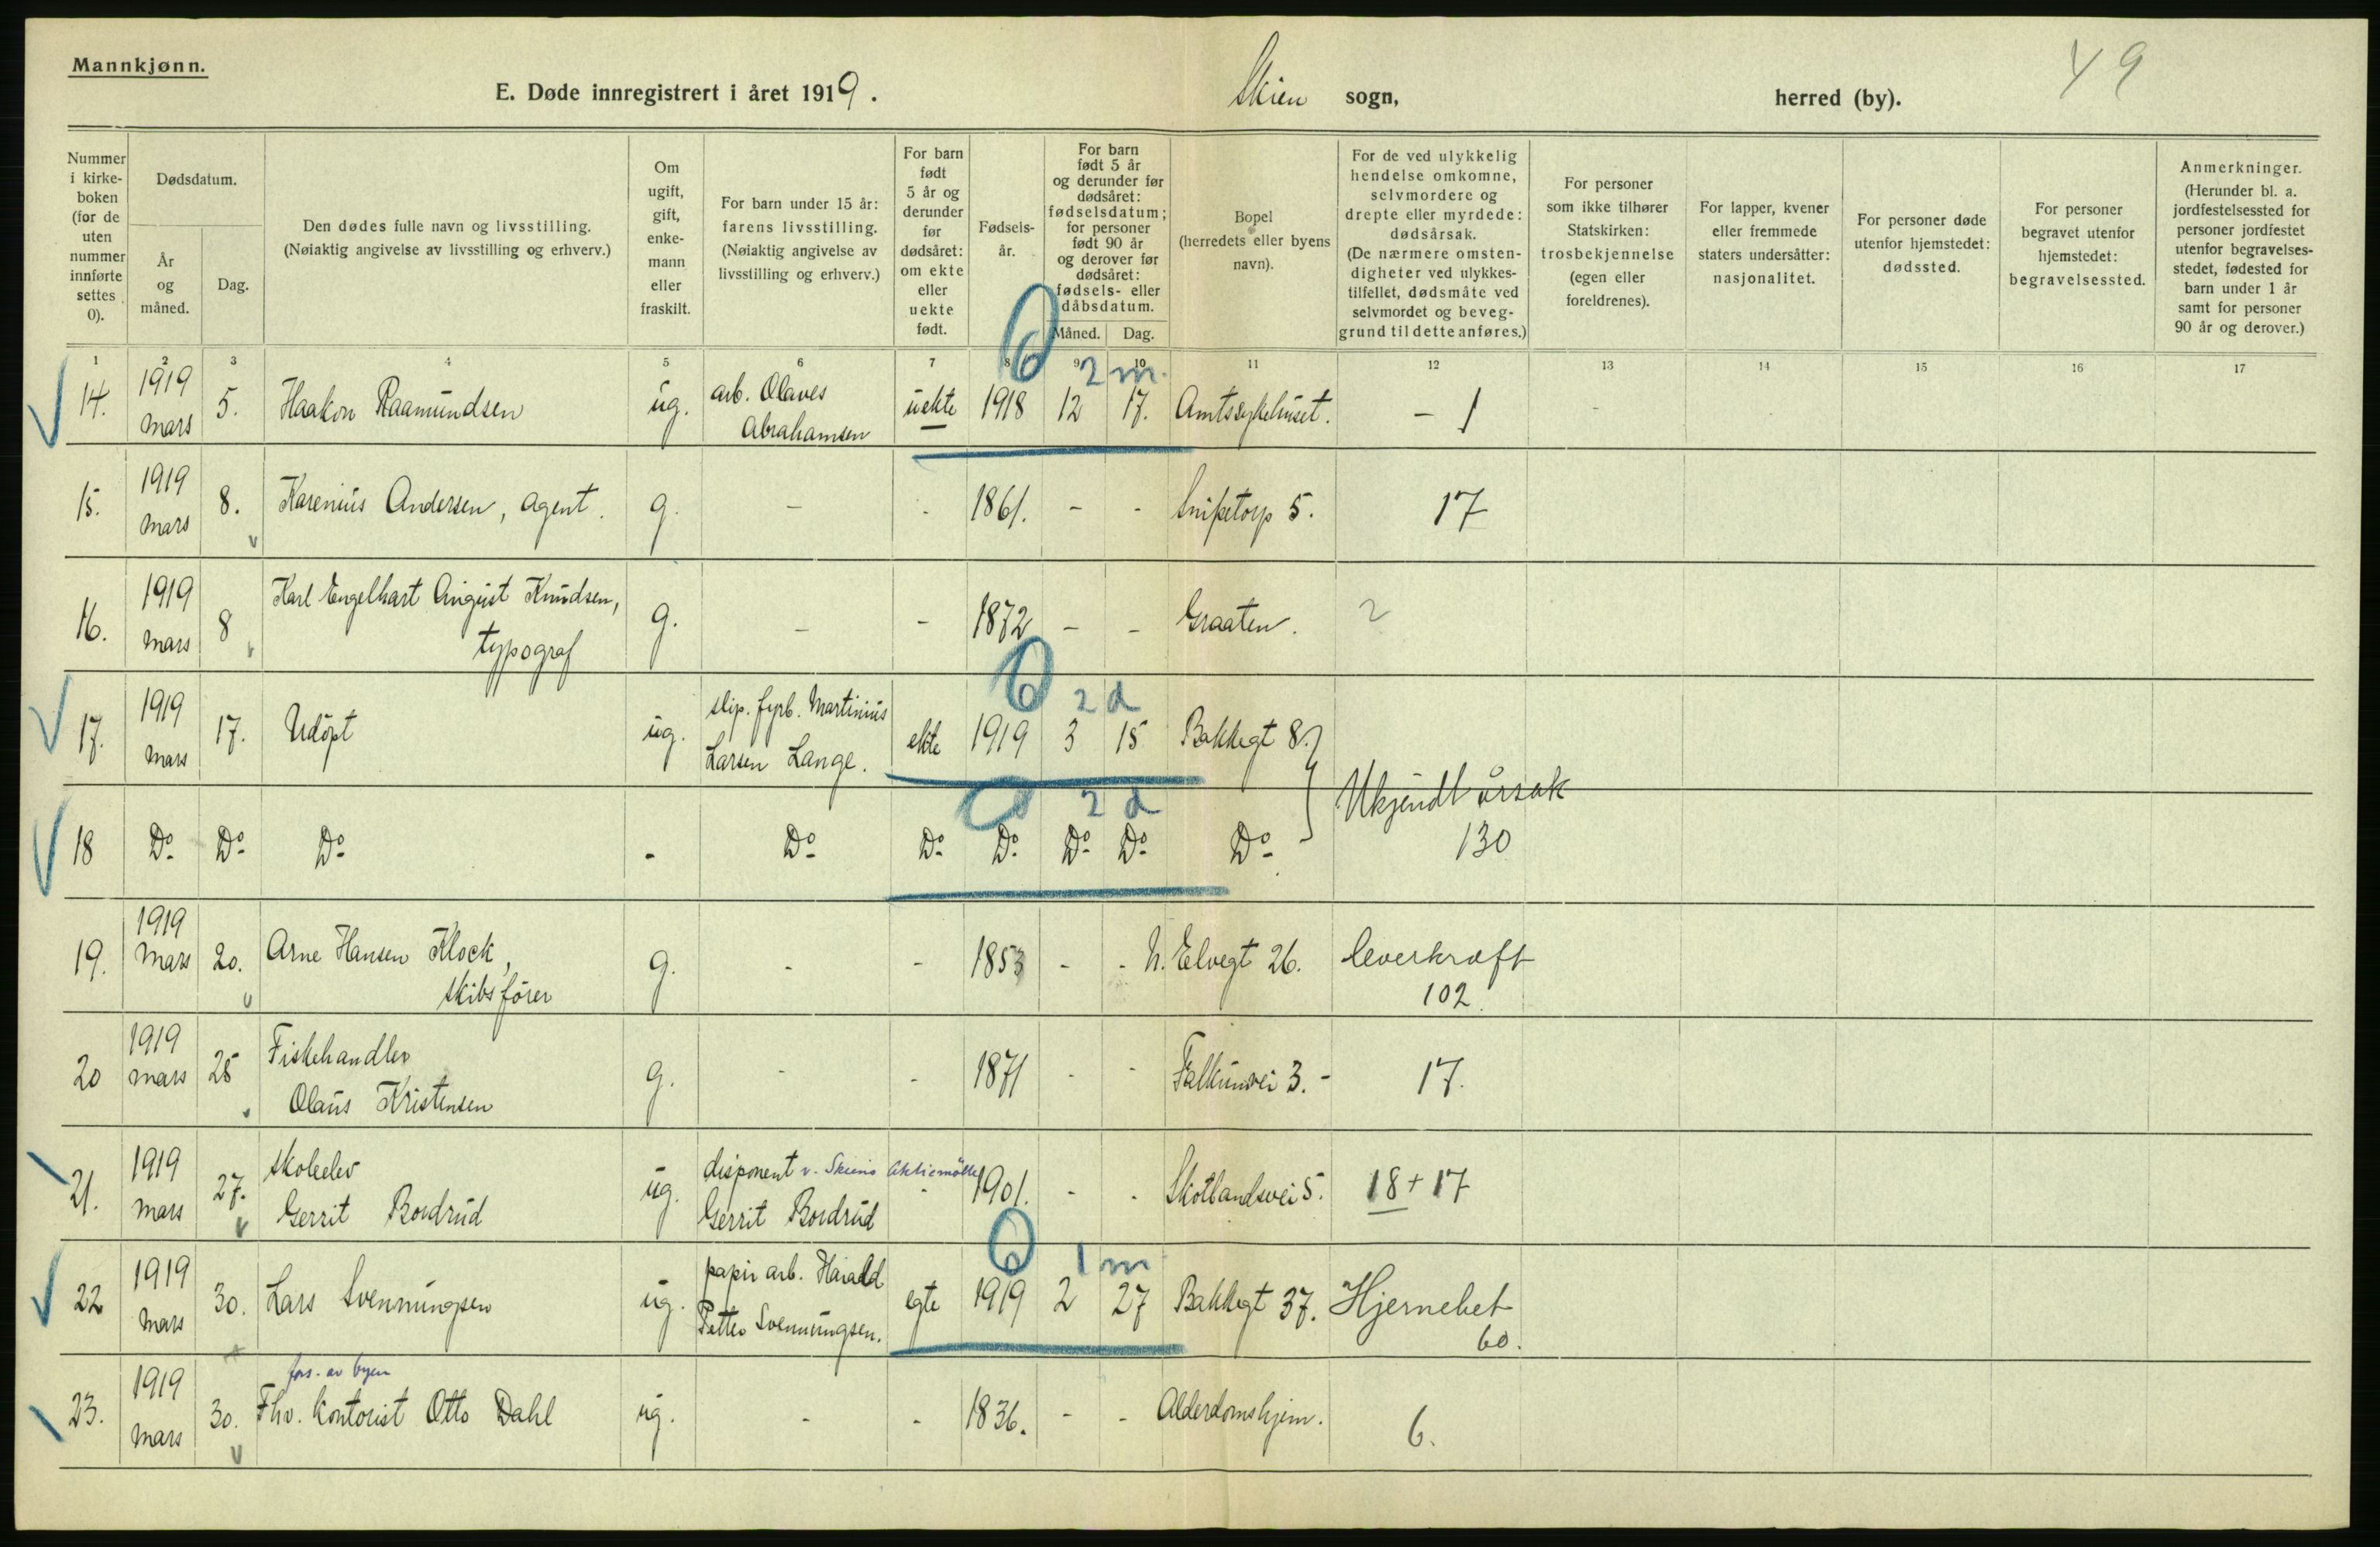 Mannkjønn.
E. Døde innregistrert i året 1919.
Skien sogn,
herred (by).
49
Nummer i kirkeboken (for de uten nummer innførte settes 0).
Dødsdatum.
År og måned.
Dag.
Den dødes fulle navn og livsstilling.
(Nøiaktig angivelse av livsstilling og erhverv.)
Om ugift, gift, enkemann eller fraskilt.
For barn under 15 år: farens livsstilling.
(Nøiaktig angivelse av livsstilling og erhverv.)
For barn født 5 år og derunder før dødsåret: om ekte eller uekte født.
Fødselsår.
For barn født 5 år og derunder før dødsåret: fødselsdatum; for personer født 90 år og derover før dødsåret: fødsels- eller dåbsdatum.
Måned. Dag.
Bopel (herredets eller byens navn).
For de ved ulykkelig hendelse omkomne, selvmordere og drepte eller myrdede: dødsårsak.
(De nærmere omstendigheter ved ulykkestilfellet, dødsmåte ved selvmordet og beveggrund til dette anføres.)
For personer som ikke tilhører Statskirken: trosbekjennelse (egen eller foreldrenes).
For lapper, kvener eller fremmede staters undersåtter: nasjonalitet.
For personer døde utenfor hjemstedet: dødssted.
For personer begravet utenfor hjemstedet: begravelsessted.
Anmerkninger.
(Herunder bl. a. jordfestelsessted for personer jordfestet utenfor begravelsesstedet, fødested for barn under 1 år samt for personer 90 år og derover.)
1 2 3 4 5 6 7 8 9 10 11 12 13 14 15 16 17
2 m.
14. 1919 mars 5. Haakon Raamundsen ug. arb. Olaves Abrahamsen uekte 1918 12 17. Amtssykehuset. - 1
15. 1919 mars 8. Karenius Andersen, agent. g. - - 1861. - - Snipetorp 5. 17
16. 1919 mars 8 Karl Engelhart August Knudsen, typograf g. - - 1872 - - Graaten. 2
2 d
17. 1919 mars 17. Udöpt ug. slip. fyrb. Martinius Larsen Lange. ekte 1919 3 15 Bakkegt 8.
2 d
Ukjendt årsak
18 Do Do Do - Do Do Do Do Do Do 130
19. 1919 mars 20. Arne Hansen Klock, skibsförer g. - - 1853 - - N. Elvegt 26. leverkræft 102.
20 1919 mars 25 Fiskehandler Olaus Kristensen g. - - 1871 - - Falkumvei 3. - 17.
21. 1919 mars 27. skoleelev Gerrit Bordrud ug. disponent v. Skiens Aktiemölle Gerrit Bordrud - 1901. - - Skotlandsvei 5. 18 + 17
1 m
22 1919 mars 30. Lars Svenningsen ug. papir arb. Harald Petter Svenningsen. egte 1919 2 27 Bakkegt 37. Hjernebet 60.
fors. av byen
23. 1919 mars 30. Fhv. kontorist Otto Dahl ug. - - 1836. - - Alderdomshjem. 6.